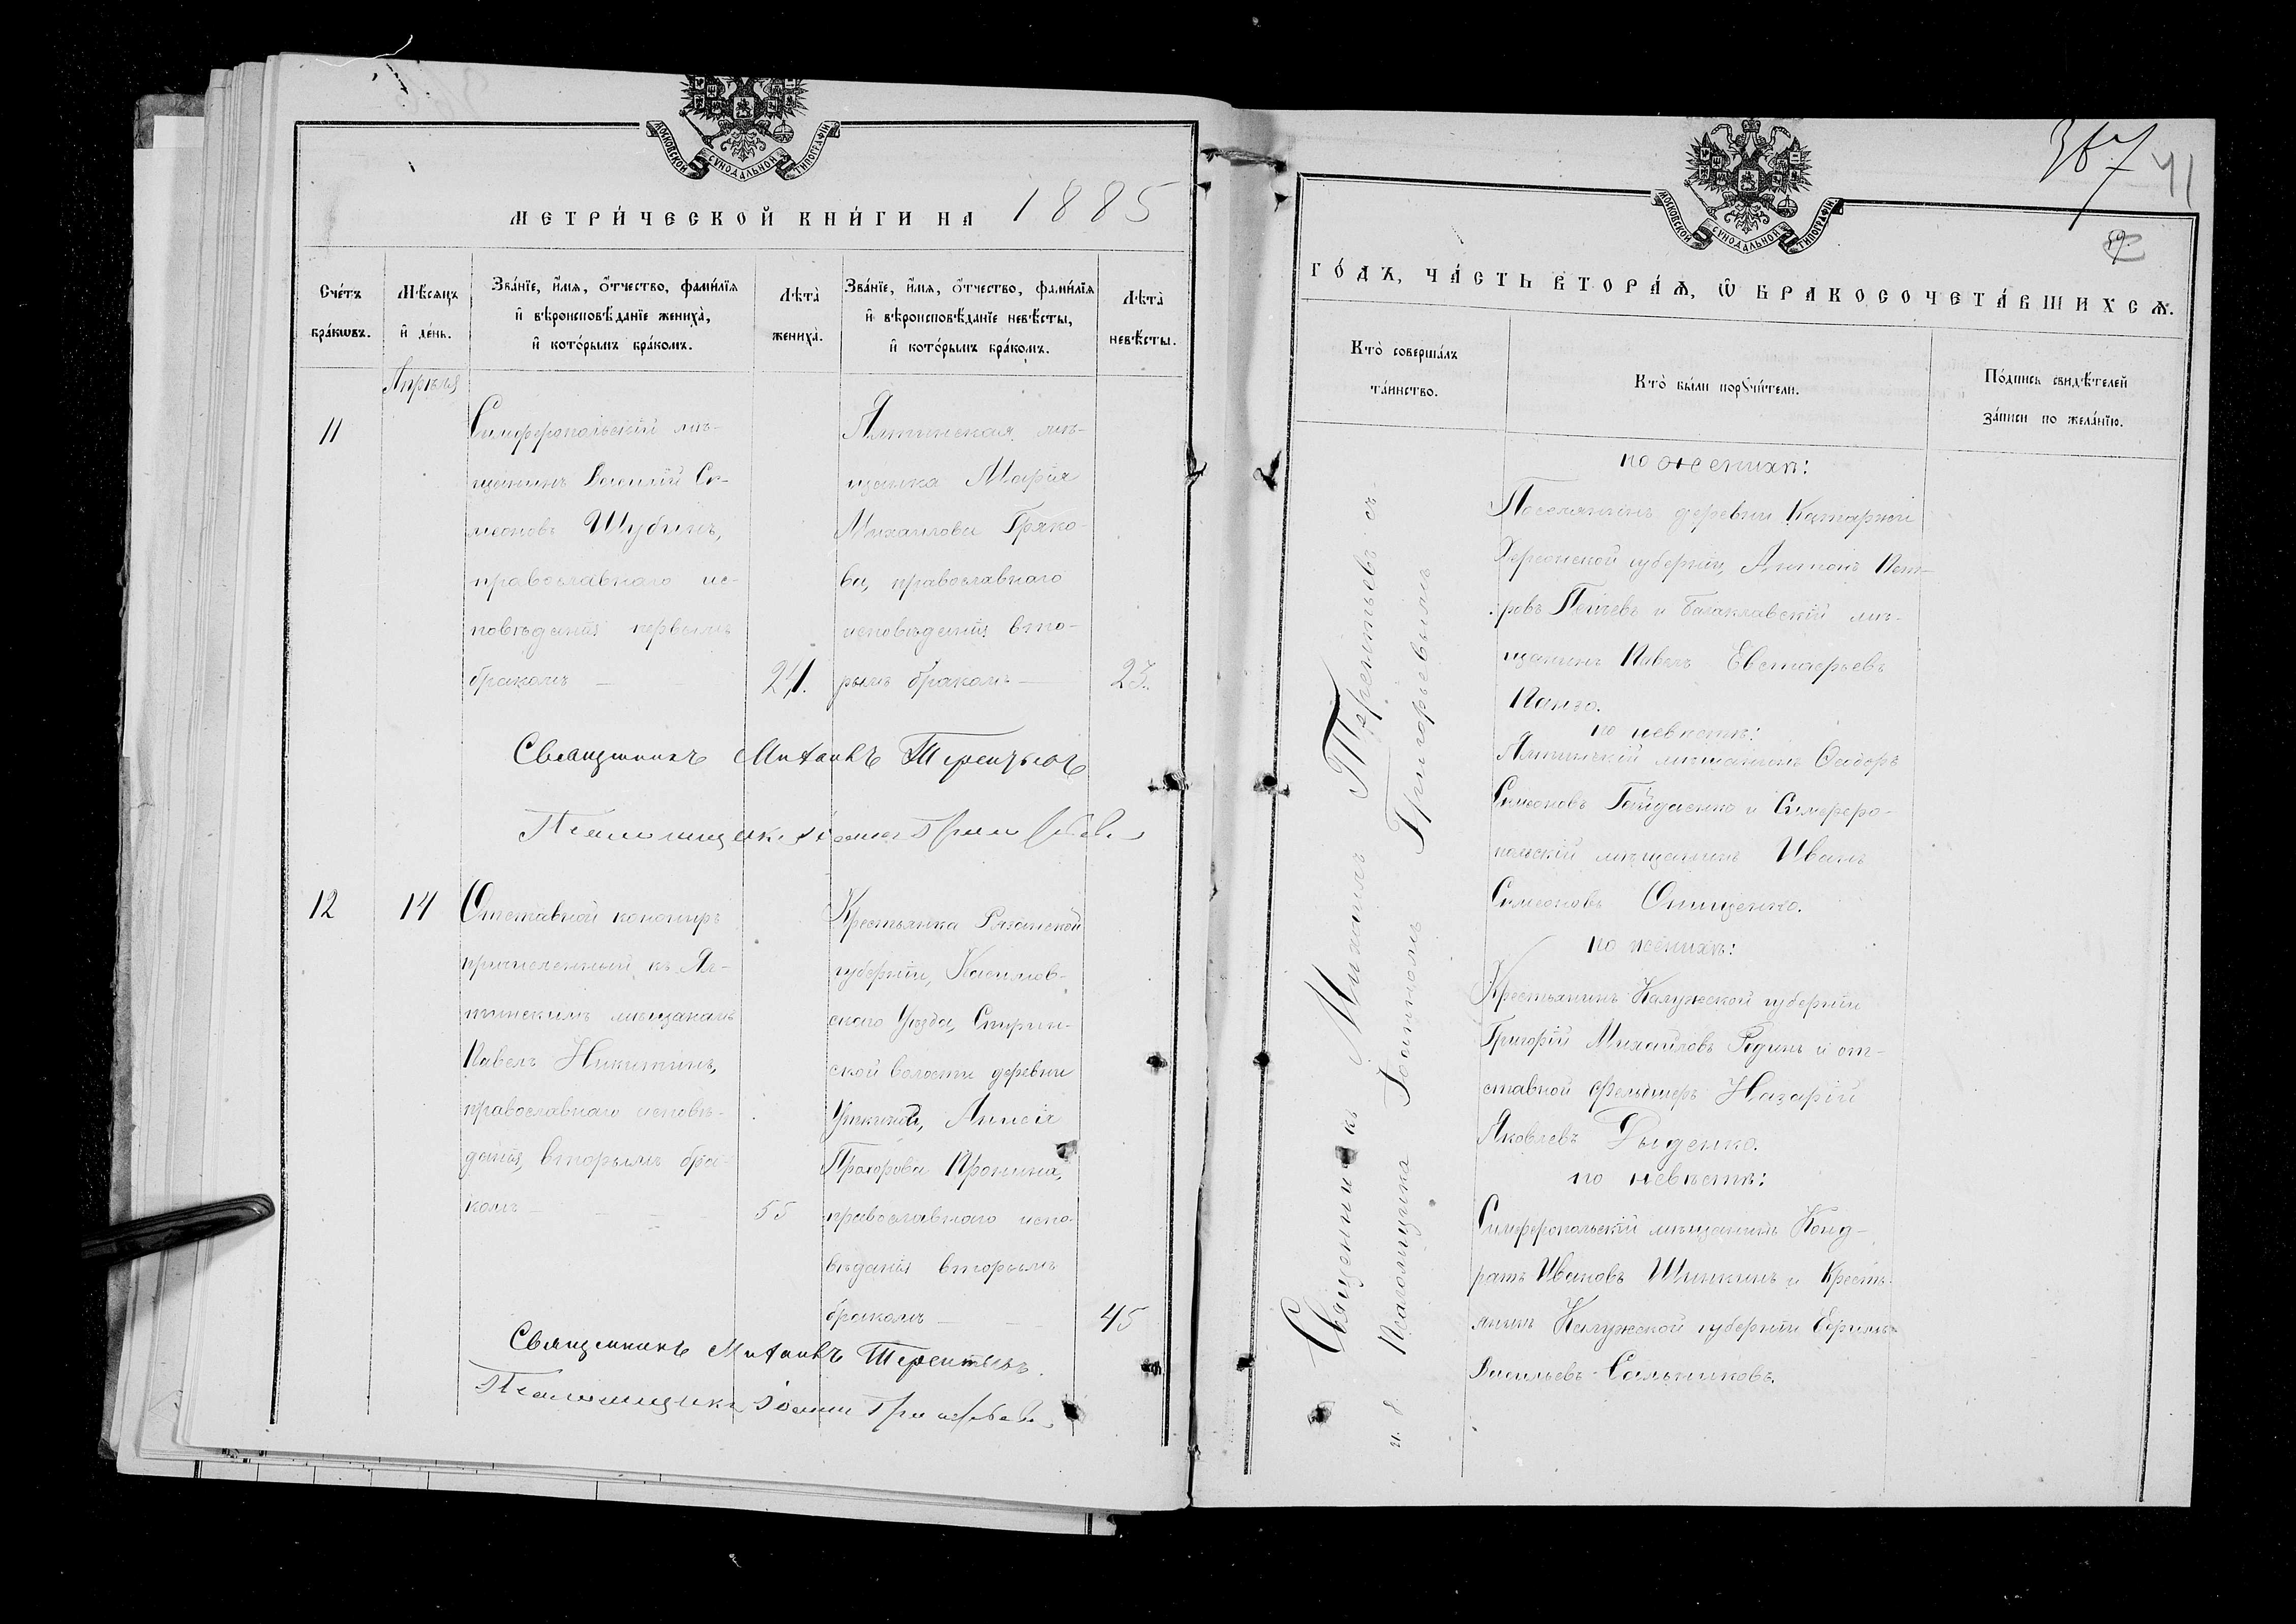 МОСКОВСКОЙ СУНОДАЛЬНОЙ ТИПОГРАФІИ
МЕТРИЧЕСКОЙ КНИГИ НА 1885
Счетъ браковъ.
Мѣсяцъ и день.
Званіе, имя, отчество, фамилія и вѣроисповѣданіе жениха, и которымъ бракомъ.
Лѣта жениха.
Званіе, имя, отчество, фамилія и вѣроисповѣданіе невѣсты, и которымъ бракомъ.
Лѣта невѣсты.
Апрѣля
11
Симферопольскій мѣ-
щанинъ Василій Си-
меоновъ Шубинъ,
православнаго ис-
повѣданія первымъ
бракомъ
24.
Ялтинская мѣ-
щанка Марія
Михаилова Гряко-
ва, православнаго
исповѣданія вто-
рымъ бракомъ
23.
Священникъ Михаилъ Терентьевъ
Псаломщикъ Іоаннъ Григорьевъ
12
14
Отставной канониръ
причисленный къ Ял-
тинскимъ мѣщанамъ
Павелъ Никитинъ,
православнаго исповѣ-
данія, вторымъ бра-
комъ
55
Крестьянка Рязанской
губерніи, Касимов-
скаго Уѣзда,
ской волости деревни
Анисія
Прохорова Пронина,
православнаго испо-
вѣданія вторымъ
бракомъ
45
Священникъ Михаилъ Терентьевъ.
Псаломщикъ Іоаннъ Григорьевъ
367
41
МОСКОВСКОЙ СУНОДАЛЬНОЙ ТИПОГРАФІИ
ГОДЪ, ЧАСТЬ ВТОРАЯ, Ѿ БРАКОСОЧЕТАВШИХСЯ.
Кто совершалъ таинство.
Кто были поручители.
Подпись свидѣтелей записи по желанію.
Священникъ Михаилъ Терентьевъ съ
и. д. Псаломщика Іоанномъ Григорьевымъ
по женихѣ:
Поселянинъ деревни Катаржи
Херсонской губерніи, Антонъ Пет-
ровъ Пейчевъ и Балаклавскій мѣ-
щанинъ Павелъ Евстафьевъ
Панго.
по невѣстѣ:
Ялтинскій мѣщанинъ Ѳеодоръ
Симеоновъ Гайдаенко и Симферо-
польскій мѣщанинъ Иванъ
Симеоновъ Онищенко.
по женихѣ:
Крестьянинъ Калужской губерніи
Григорій Михаиловъ Родинъ и от-
ставной фельдшеръ Назарій
Яковлевъ Дыденко.
по невѣстѣ:
Симферопольскій мѣщанинъ Конд-
ратъ Ивановъ Шишкинъ и Кресть-
янинъ Калужской губерніи Ефимъ
Васильевъ Сальниковъ.